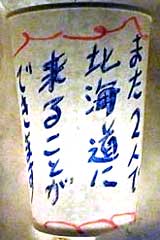 また2人で
北海道に
来ることが
できます